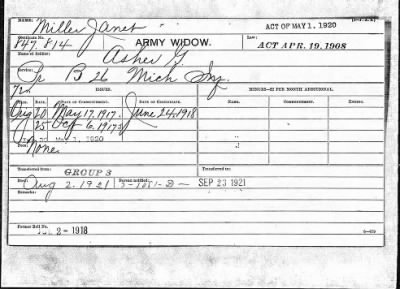 NAME: Miller Janet
ACT OF MAY 1, 1920
Certificate No. 847.814
ARMY WIDOW.
Law: ACT APR. 19, 1908
Name of Soldier: Asher G.
Service: Pr B 26 Mich Inf.
ISSUES.
MINORS—$2 PER MONTH ADDITIONAL.
RATE. DATE OF COMMENCEMENT. DATE OF CERTIFICATE.
NAME. COMMENCEMENT. ENDING.
20 May 17. 1917. June 24, 1918
25 Oct 6. 1917
1920
None
Transferred from: GROUP 3
Transferred to:
Died: Aug 2. 1921
Bureau notified: 3-1081-D- SEP 23 1921
Remarks:
Former Roll No. 2-1918